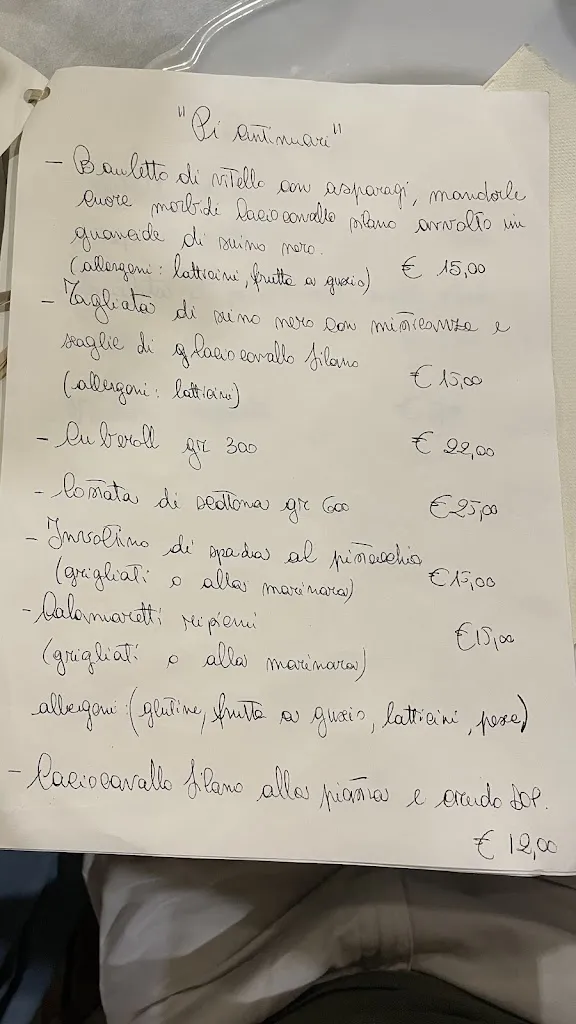 "Pi antinuari"
- Bauletto di vitello con asparagi, mandorle
cuore morbidi Caciocavallo silano avvolto in
guanciale di suino nero.
(allergeni: latticini, frutta a guscio) € 15,00
- Tagliata di suino nero con misticanza e
scaglie di Caciocavallo silano € 15,00
(allergeni: latticini)
- Cuberoll gr 300 € 22,00
- Costata di scottona gr 600 € 25,00
- Involtino di spada al pistacchio
(grigliati o alla marinara) € 15,00
- Calamaretti ripieni € 15,00
(grigliati o alla marinara)
allergeni: (glutine, frutta a guscio, latticini, pesce)
- Caciocavallo silano alla piastra e crudo DOP.
€ 12,00